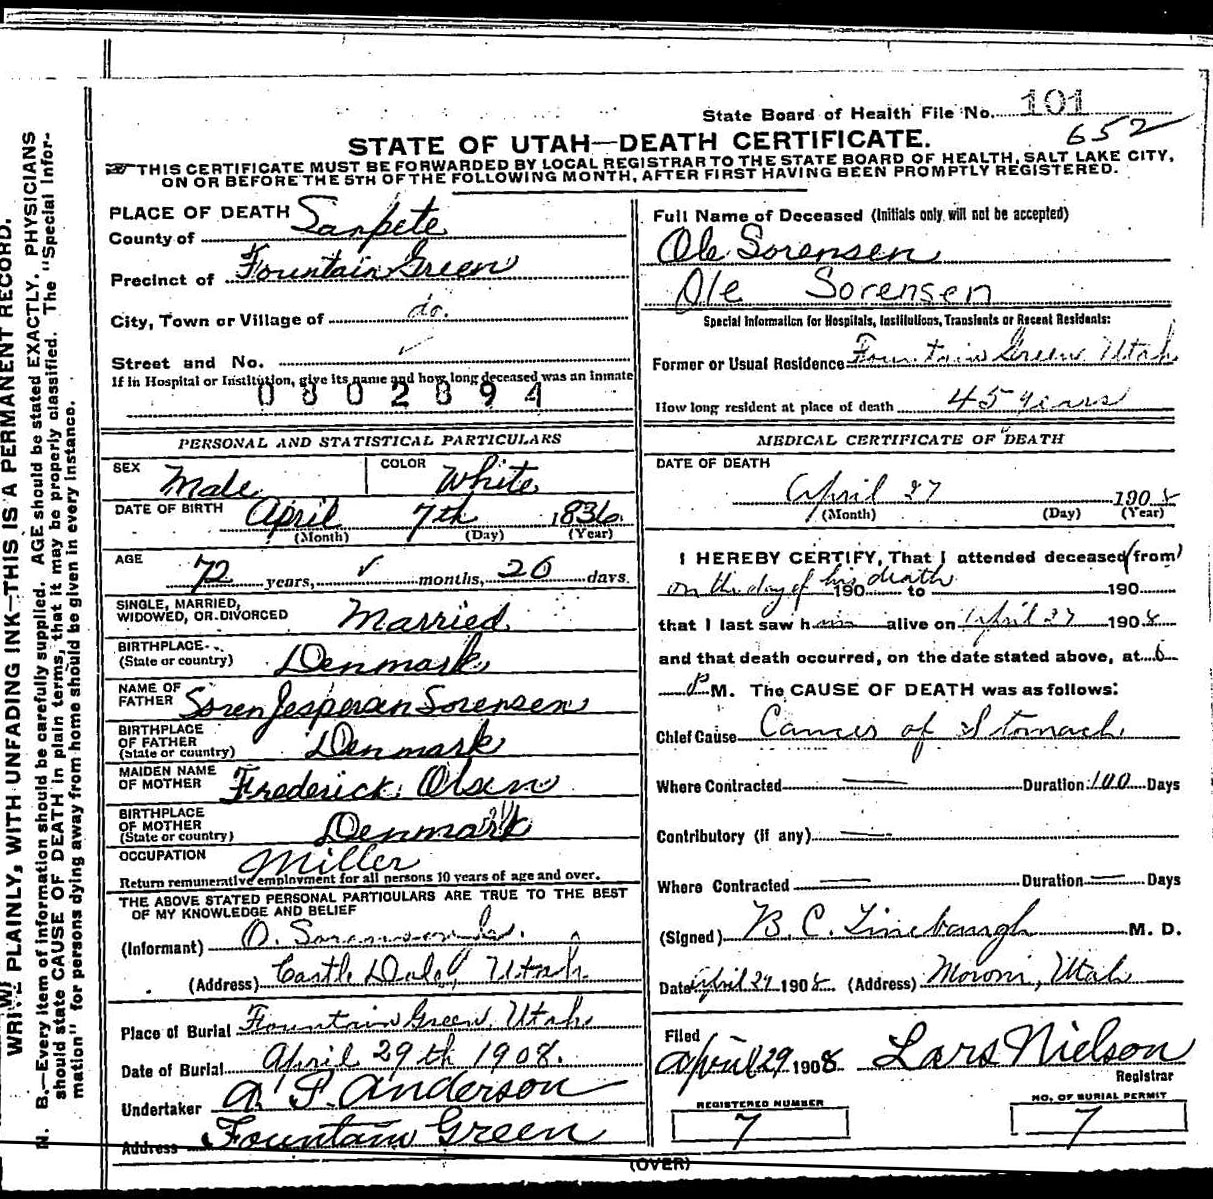 State Board of Health File No. 101
652
STATE OF UTAH—DEATH CERTIFICATE.
THIS CERTIFICATE MUST BE FORWARDED BY LOCAL REGISTRAR TO THE STATE BOARD OF HEALTH, SALT LAKE CITY,
ON OR BEFORE THE 5TH OF THE FOLLOWING MONTH, AFTER FIRST HAVING BEEN PROMPTLY REGISTERED.
PLACE OF DEATH
County of Sanpete
Precinct of Fountain Green
City, Town or Village of do.
Street and No. ✓
If in Hospital or Institution, give its name and how long deceased was an inmate
0802894
PERSONAL AND STATISTICAL PARTICULARS
SEX Male
COLOR White
DATE OF BIRTH April 7th 1836
(Month) (Day) (Year)
AGE 72 years, ✓ months, 20 days.
SINGLE, MARRIED,
WIDOWED, OR DIVORCED Married
BIRTHPLACE
(State or country) Denmark
NAME OF
FATHER Soren Jespersen Sorensen
BIRTHPLACE
OF FATHER
(State or country) Denmark
MAIDEN NAME
OF MOTHER Frederick Olsen
BIRTHPLACE
OF MOTHER
(State or country) Denmark
OCCUPATION Miller
Return remunerative employment for all persons 10 years of age and over.
THE ABOVE STATED PERSONAL PARTICULARS ARE TRUE TO THE BEST
OF MY KNOWLEDGE AND BELIEF
(Informant) O. Sorenson
(Address) Castle Dale, Utah
Place of Burial Fountain Green, Utah
Date of Burial April 29th 1908.
Undertaker A. P. Anderson
Address Fountain Green
Full Name of Deceased (Initials only will not be accepted)
Ole Sorensen
Ole Sorensen
Special Information for Hospitals, Institutions, Transients or Recent Residents:
Former or Usual Residence Fountain Green Utah
How long resident at place of death 45 years
MEDICAL CERTIFICATE OF DEATH
DATE OF DEATH
April 27 1908
(Month) (Day) (Year)
I HEREBY CERTIFY, That I attended deceased (from)
on the day of his death 190 to 190
that I last saw him alive on April 27 1908
and that death occurred, on the date stated above, at 6
P M. The CAUSE OF DEATH was as follows:
Chief Cause Cancer of Stomach
Where Contracted Duration 100 Days
Contributory (if any)
Where Contracted Duration Days
(Signed) B. C. Linebaugh M. D.
Date April 29 1908 (Address) Moroni, Utah
Filed
April 29 1908 Lars Nielson
Registrar
REGISTERED NUMBER
7
NO. OF BURIAL PERMIT
7
(OVER)
WRITE PLAINLY, WITH UNFADING INK—THIS IS A PERMANENT RECORD.
N. B.—Every item of information should be carefully supplied. AGE should be stated EXACTLY. PHYSICIANS
should state CAUSE OF DEATH in plain terms, that it may be properly classified. The "Special Infor-
mation" for persons dying away from home should be given in every instance.